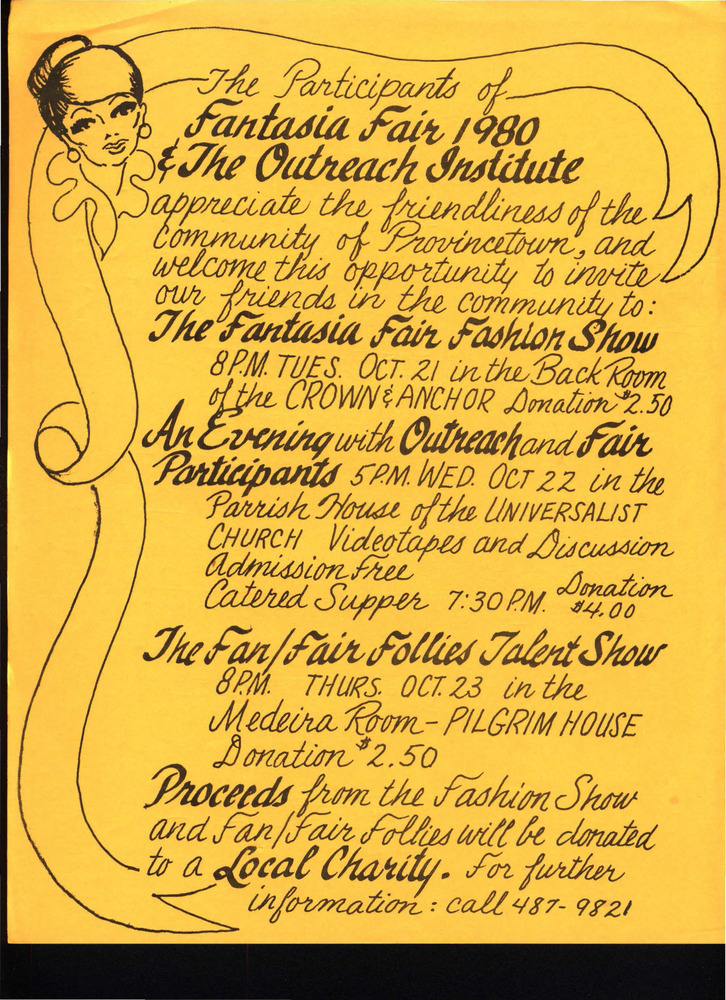 The Participants of
Fantasia Fair 1980
& The Outreach Institute
appreciate the friendliness of the
Community of Provincetown, and
welcome this opportunity to invite
our friends in the community to:
The Fantasia Fair Fashion Show
8 P.M. TUES. OCT. 21 in the Back Room
of the CROWN & ANCHOR Donation $2.50
An Evening with Outreach and Fair
Participants 5 P.M. WED. OCT 22 in the
Parrish House of the UNIVERSALIST
CHURCH Videotapes and Discussion
Admission Free
Catered Supper 7:30 P.M. Donation $4.00
The Fan/Fair Follies Talent Show
8 P.M. THURS. OCT. 23 in the
Medeira Room - PILGRIM HOUSE
Donation $2.50
Proceeds from the Fashion Show
and Fan/Fair Follies will be donated
to a Local Charity. For further
information: call 487-9821